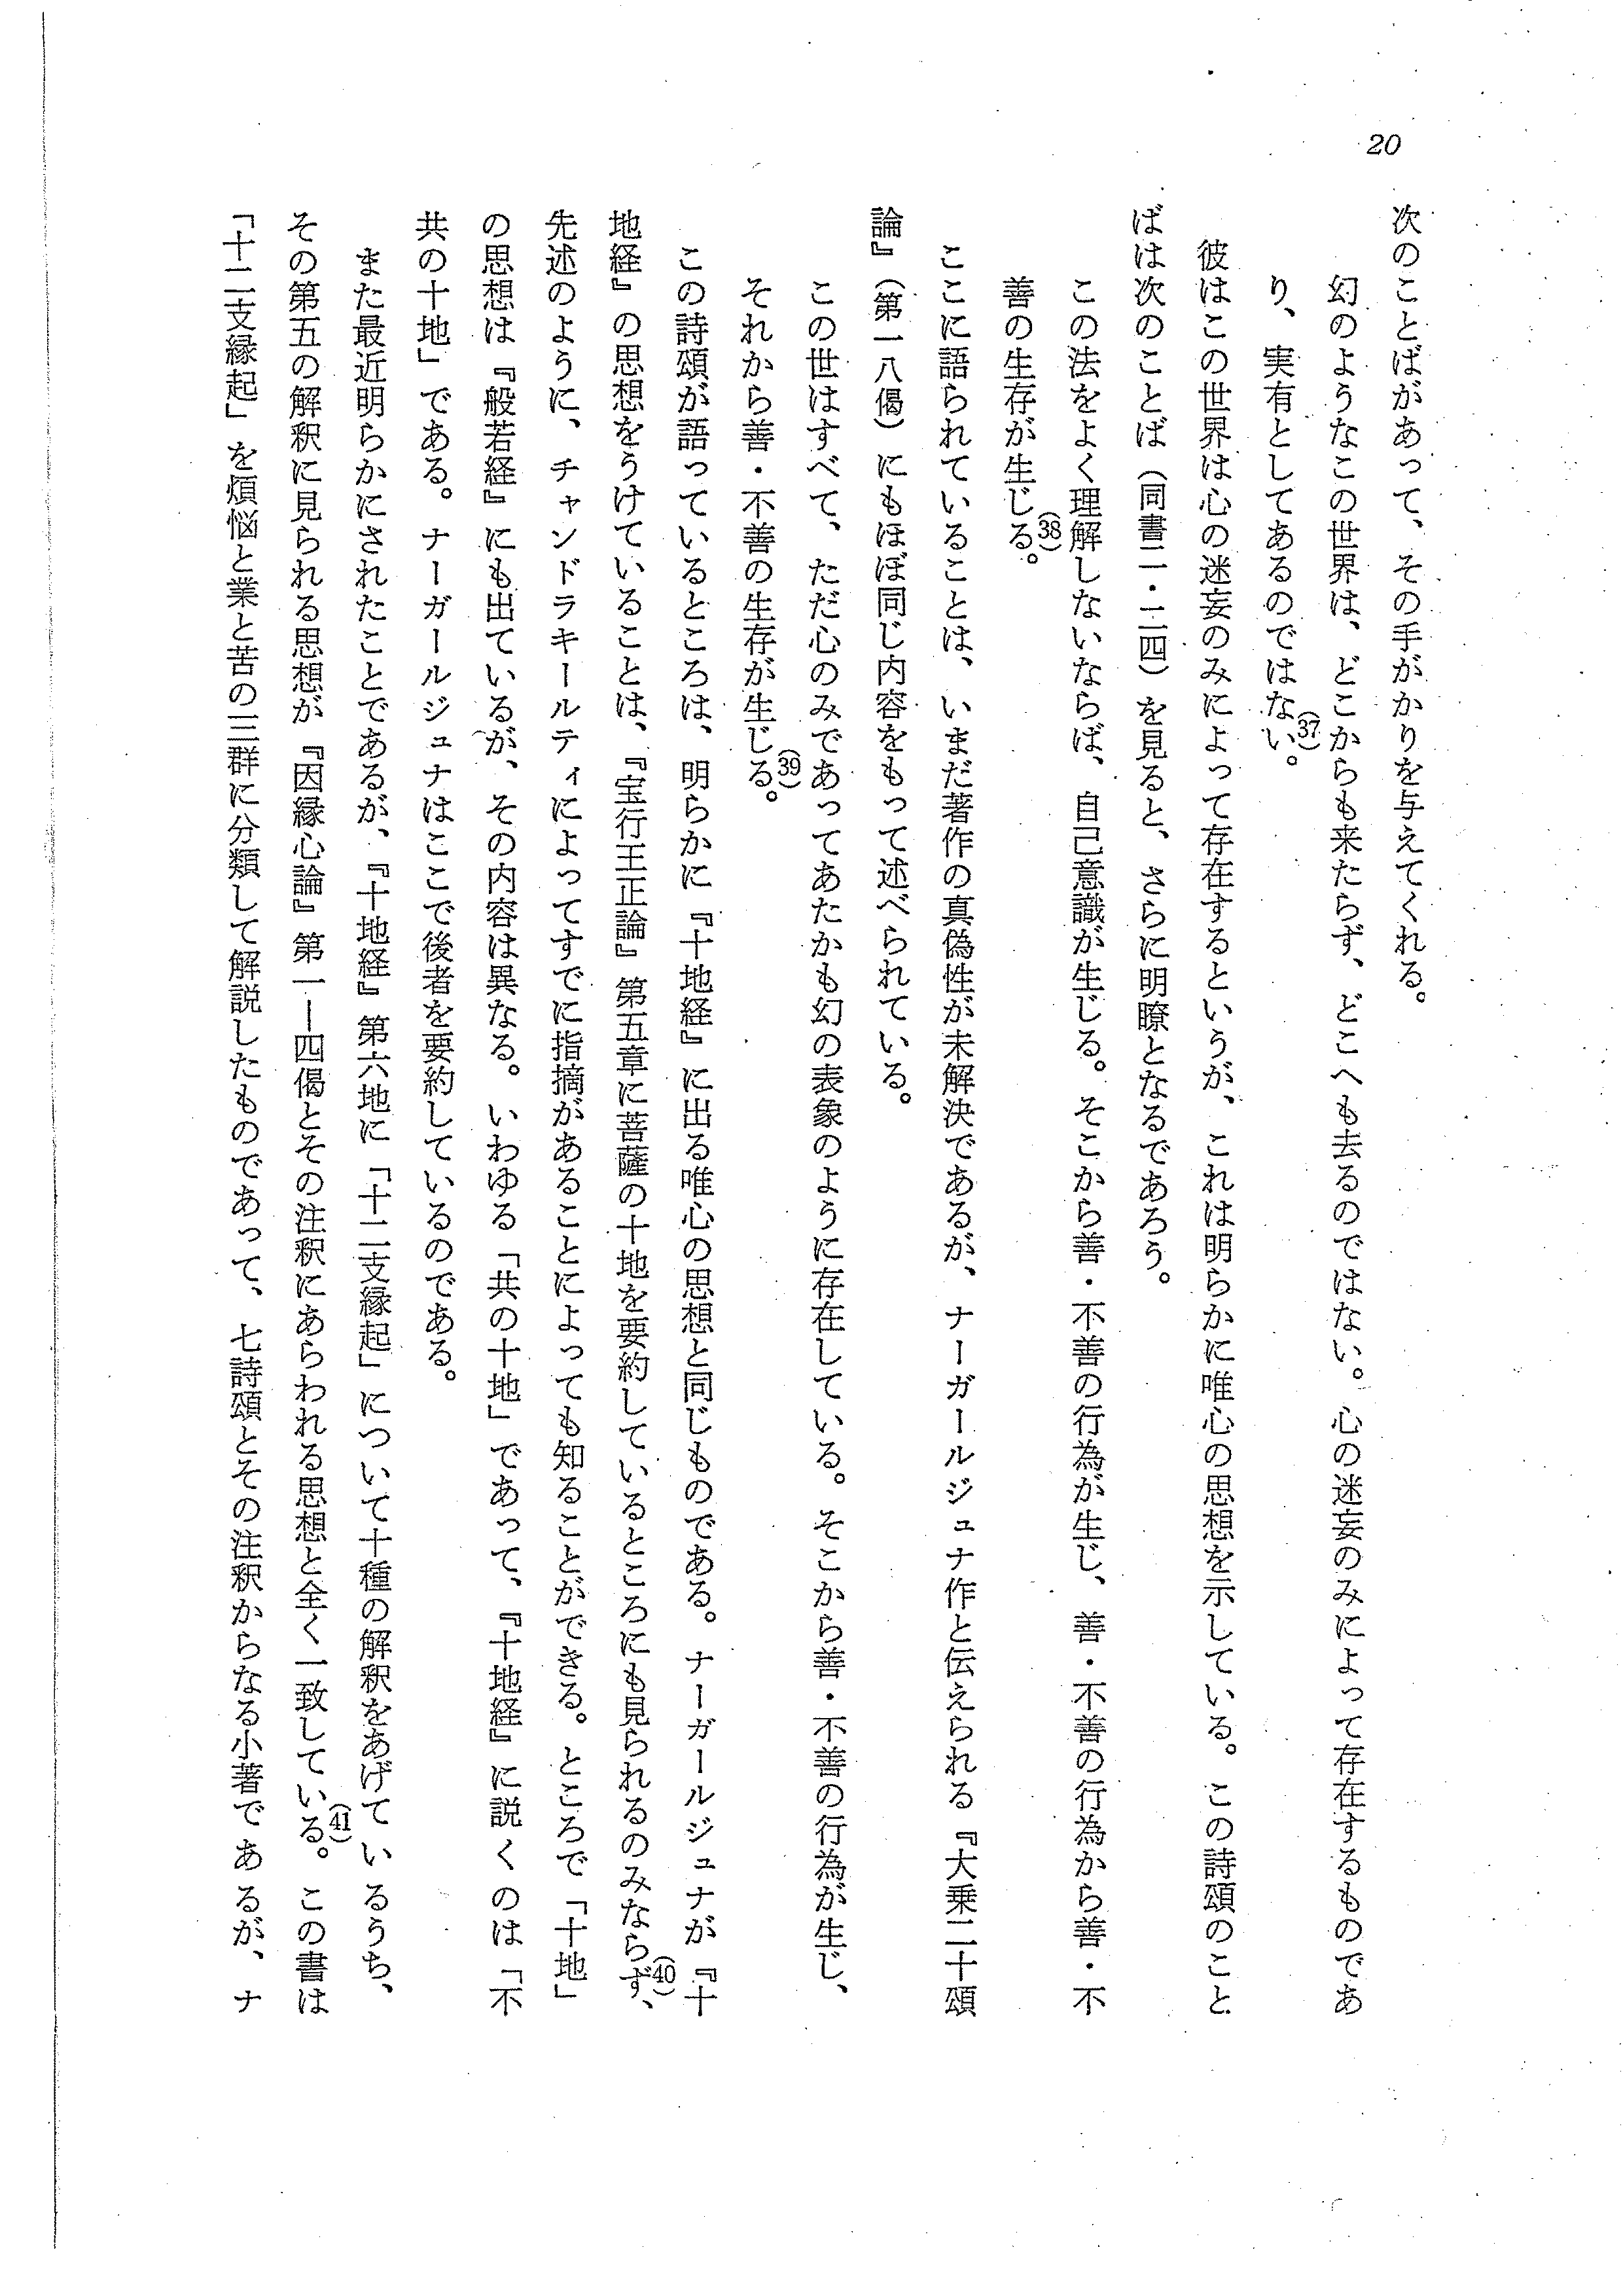 20
次のことばがあって、その手がかりを与えてくれる。
幻のようなこの世界は、どこからも来たらず、どこへも去るのではない。心の迷妄のみによって存在するものであ
り、実有としてあるのではない。(37)
彼はこの世界は心の迷妄のみによって存在するというが、これは明らかに唯心の思想を示している。この詩頌のこと
ばは次のことば(同書二・二四)を見ると、さらに明瞭となるであろう。
この法をよく理解しないならば、自己意識が生じる。そこから善・不善の行為が生じ、善・不善の行為から善・不
善の生存が生じる。(38)
ここに語られていることは、いまだ著作の真偽性が未解決であるが、ナーガールジュナ作と伝えられる『大乗二十頌
論』(第一八偈)にもほぼ同じ内容をもって述べられている。
この世はすべて、ただ心のみであってあたかも幻の表象のように存在している。そこから善・不善の行為が生じ、
それから善・不善の生存が生じる。(39)
この詩頌が語っているところは、明らかに『十地経』に出る唯心の思想と同じものである。ナーガールジュナが『十
地経』の思想をうけていることは、『宝行王正論』第五章に菩薩の十地を要約しているところにも見られるのみならず、(40)
先述のように、チャンドラキールティによってすでに指摘があることによっても知ることができる。ところで「十地」
の思想は『般若経』にも出ているが、その内容は異なる。いわゆる「共の十地」であって、『十地経』に説くのは「不
共の十地」である。ナーガールジュナはここで後者を要約しているのである。
また最近明らかにされたことであるが、『十地経』第六地に「十二支縁起」について十種の解釈をあげているうち、
その第五の解釈に見られる思想が『因縁心論』第一―四偈とその注釈にあらわれる思想と全く一致している。(41)この書は
「十二支縁起」を煩悩と業と苦の三群に分類して解説したものであって、七詩頌とその注釈からなる小著であるが、ナ